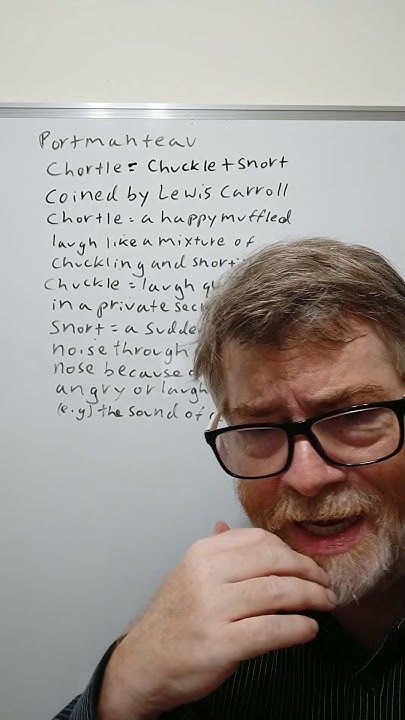 Portmanteau
Chortle = Chuckle + Snort
Coined by Lewis Carroll
Chortle = a happy muffled
laugh like a mixture of
Chuckling and
Chuckle = laugh
in a private
Snort = a
noise through
nose because
angry or
(e.g) the sound of